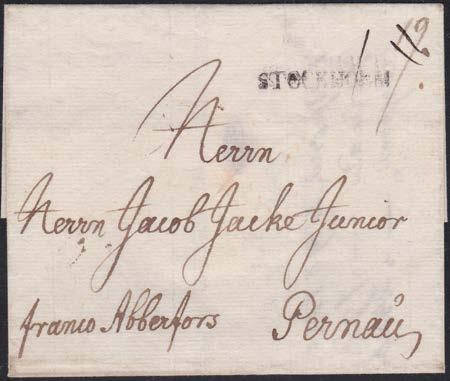 12
STOCKHOLM
Herrn
Herrn Jacob Jacke Junior
franco Abberfors Pernau